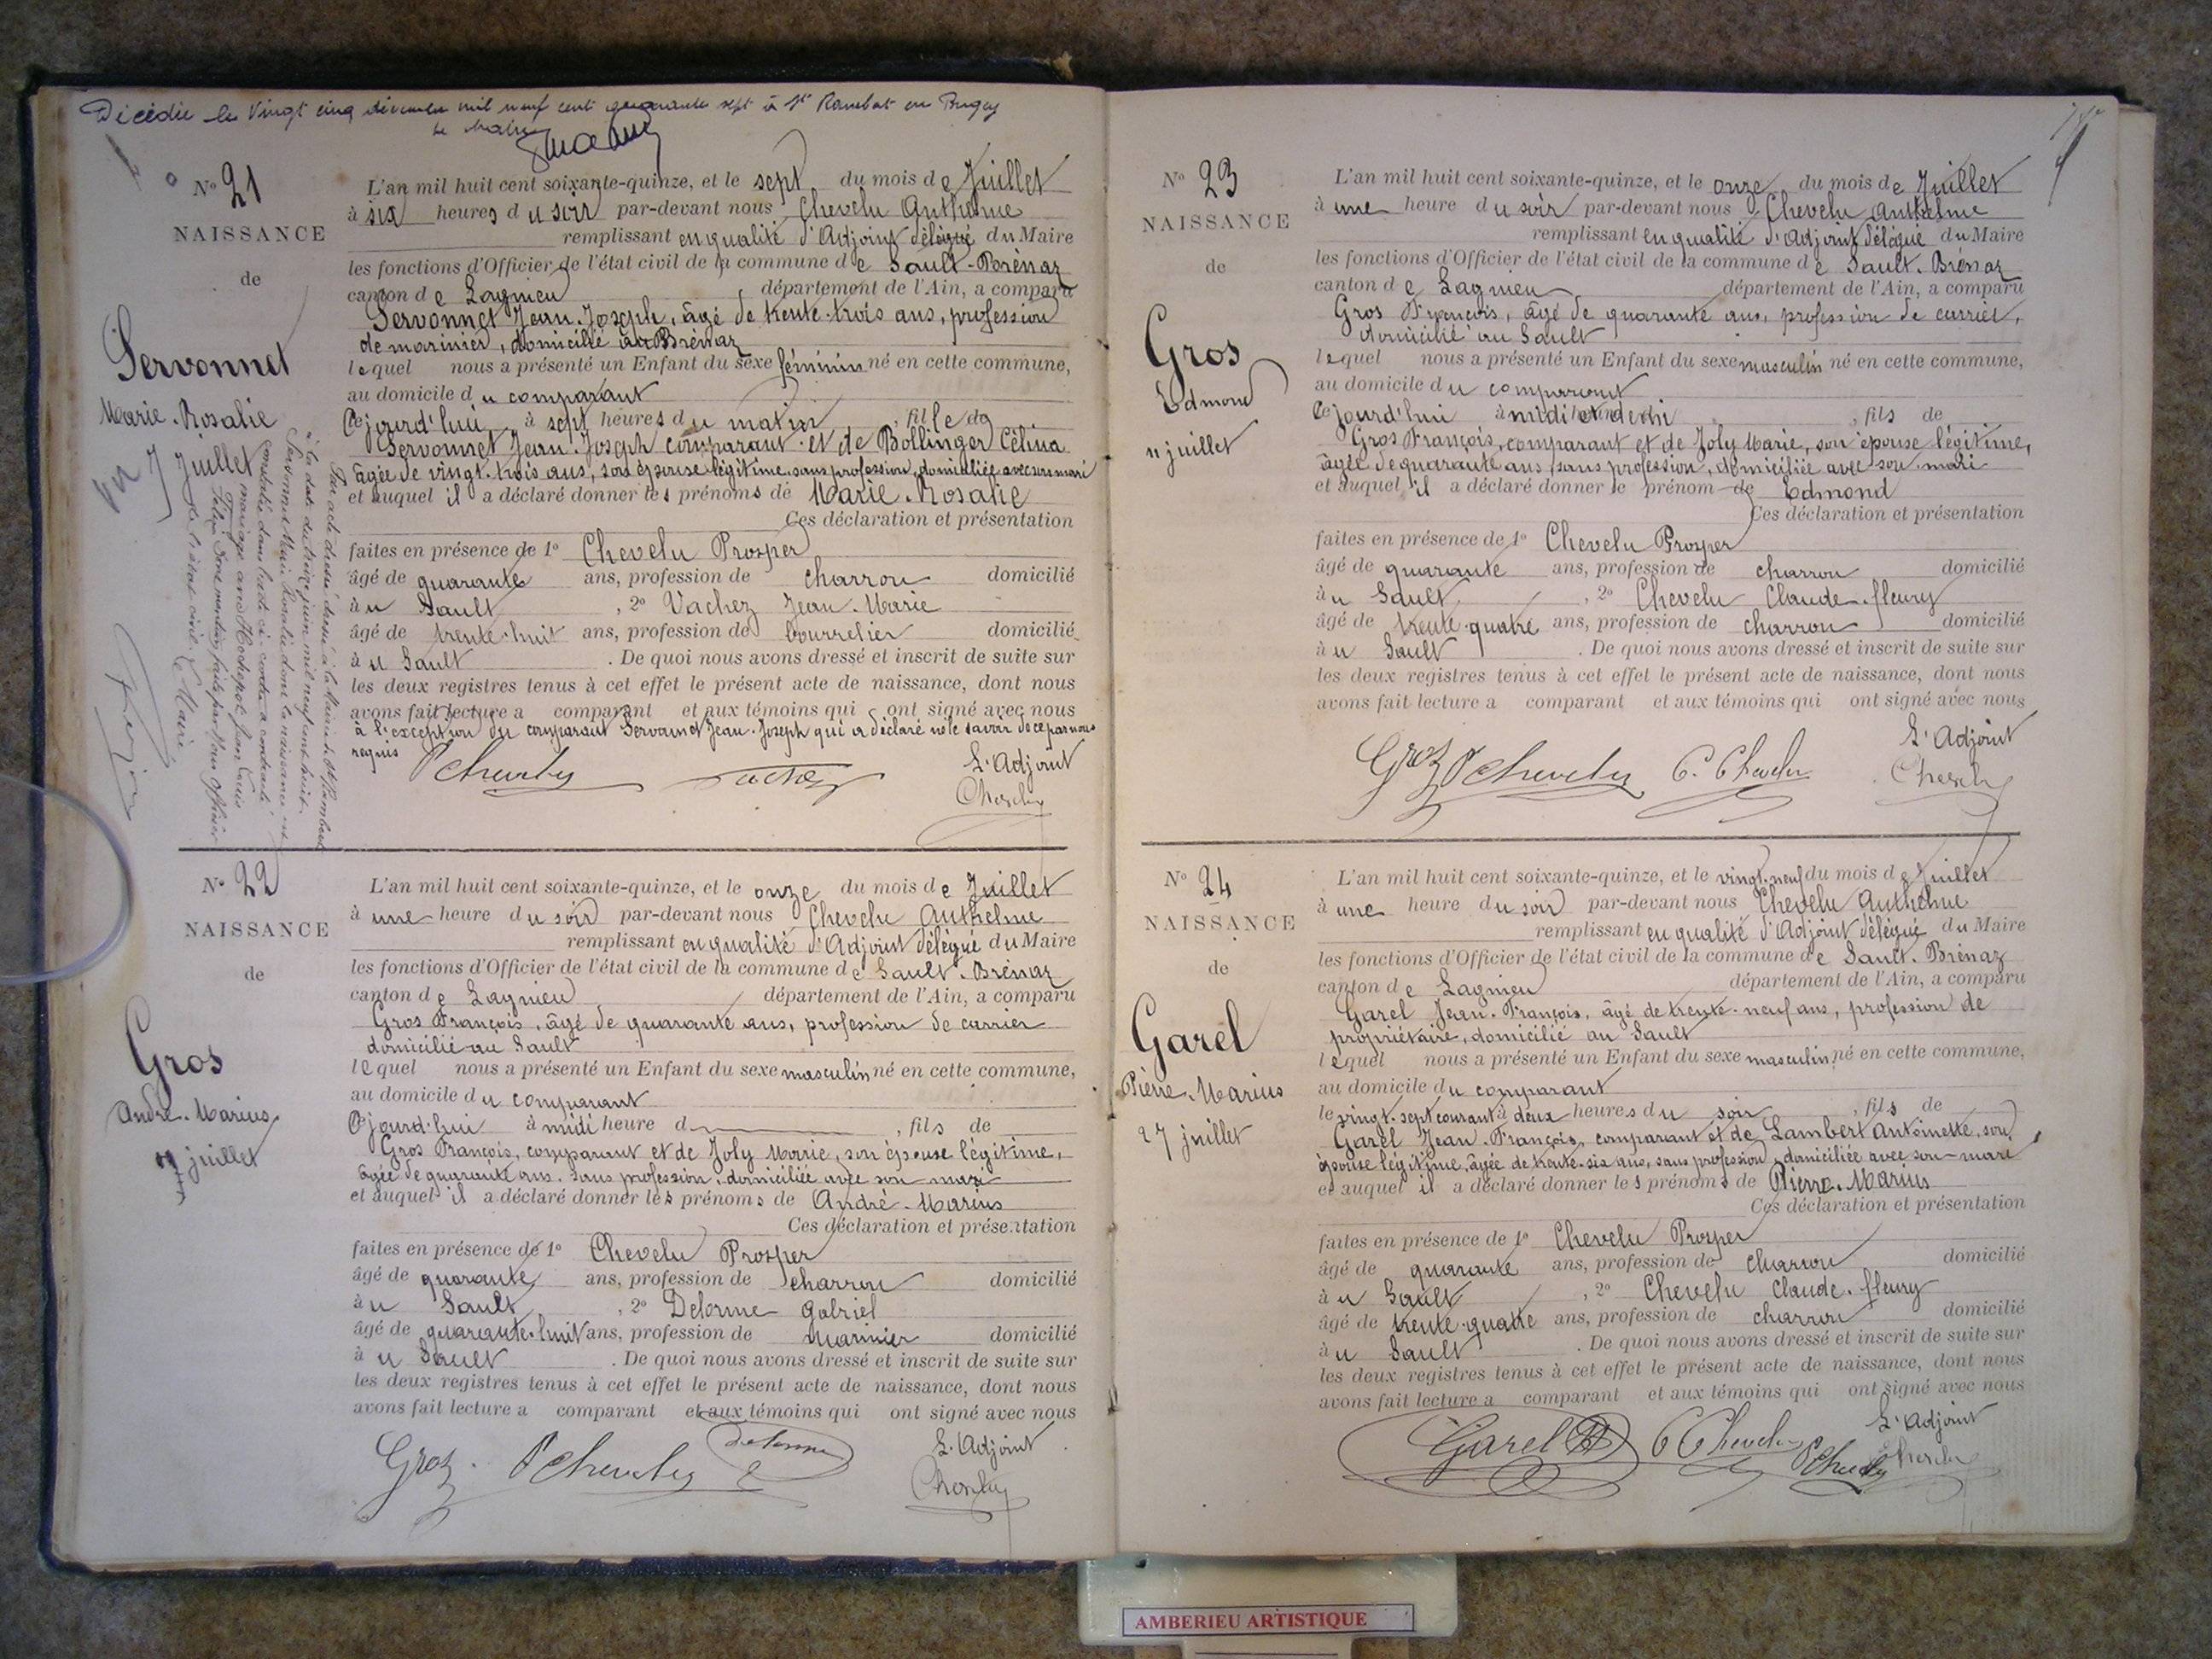 Décédée le Vingt cinq décembre mil neuf cent quarante sept à St Rambert en Bugey
le Maire
No 21
NAISSANCE
de
Servonnet
Marie-Rosalie
7 Juillet
L'an mil huit cent soixante-quinze, et le sept du mois de Juillet
à six heures du soir par-devant nous Chevelu Anthelme
remplissant en qualité d'Adjoint délégué du Maire
les fonctions d'Officier de l'état civil de la commune de Sault-Brénaz
canton de Lagnieu département de l'Ain, a comparu
Servonnet Jean-Joseph, âgé de trente-trois ans, profession
de marinier, domicilié au Brénaz
lequel nous a présenté un Enfant du sexe féminin né en cette commune,
au domicile du comparant
Cejourd'hui à sept heures du matin, fille de
Servonnet Jean-Joseph comparant et de Bollinger Célina
âgée de vingt-trois ans, son épouse légitime sans profession, domiciliée avec son mari
et auquel il a déclaré donner les prénoms de Marie-Rosalie
Ces déclaration et présentation
faites en présence de 1o Chevelu Prosper
âgé de quarante ans, profession de charron domicilié
à u Sault, 2o Vachez Jean-Marie
âgé de trente-huit ans, profession de bourrelier domicilié
à u Sault. De quoi nous avons dressé et inscrit de suite sur
les deux registres tenus à cet effet le présent acte de naissance, dont nous
avons fait lecture a comparant et aux témoins qui ont signé avec nous
à l'exception du comparant Servonnet Jean-Joseph qui a déclaré ne le savoir de ce par nous
requis
L'Adjoint
PChevelu Vachez Chevelu
Par acte dressé à la Mairie de St Rambert
à la date du treize juin mil neuf cent huit,
Servonnet Marie Rosalie dont la naissance est
constatée dans l'acte ci-contre a contracté
mariage avec
No 22
NAISSANCE
de
Gros
André-Marius
11 juillet
L'an mil huit cent soixante-quinze, et le onze du mois de Juillet
à une heure du soir par-devant nous Chevelu Anthelme
remplissant en qualité d'Adjoint délégué du Maire
les fonctions d'Officier de l'état civil de la commune de Sault-Brénaz
canton de Lagnieu département de l'Ain, a comparu
Gros François, âgé de quarante ans, profession de carrier
domicilié au Sault
lequel nous a présenté un Enfant du sexe masculin né en cette commune,
au domicile du comparant
Cejourd'hui à midi heure d, fils de
Gros François, comparant et de Joly Marie, son épouse légitime,
âgée de quarante ans, sans profession, domiciliée avec son mari
et auquel il a déclaré donner les prénoms de André-Marius
Ces déclaration et présentation
faites en présence de 1o Chevelu Prosper
âgé de quarante ans, profession de charron domicilié
à u Sault, 2o Delorme Gabriel
âgé de quarante-huit ans, profession de marinier domicilié
à u Sault. De quoi nous avons dressé et inscrit de suite sur
les deux registres tenus à cet effet le présent acte de naissance, dont nous
avons fait lecture a comparant et aux témoins qui ont signé avec nous
L'Adjoint
Groz PChevelu Delorme Chevelu
No 23
NAISSANCE
de
Gros
Edmond
11 juillet
L'an mil huit cent soixante-quinze, et le onze du mois de Juillet
à une heure du soir par-devant nous Chevelu Anthelme
remplissant en qualité d'Adjoint délégué du Maire
les fonctions d'Officier de l'état civil de la commune de Sault-Brénaz
canton de Lagnieu département de l'Ain, a comparu
Gros François, âgé de quarante ans, profession de carrier,
domicilié au Sault
lequel nous a présenté un Enfant du sexe masculin né en cette commune,
au domicile du comparant
Cejourd'hui à midi et demi, fils de
Gros François, comparant et de Joly Marie, son épouse légitime,
âgée de quarante ans, sans profession, domiciliée avec son mari
et auquel il a déclaré donner le prénom de Edmond
Ces déclaration et présentation
faites en présence de 1o Chevelu Prosper
âgé de quarante ans, profession de charron domicilié
à u Sault, 2o Chevelu Claude-fleury
âgé de trente-quatre ans, profession de charron domicilié
à u Sault. De quoi nous avons dressé et inscrit de suite sur
les deux registres tenus à cet effet le présent acte de naissance, dont nous
avons fait lecture a comparant et aux témoins qui ont signé avec nous
L'Adjoint
Groz PChevelu C. Chevelu Chevelu
No 24
NAISSANCE
de
Garel
Pierre-Marius
27 juillet
L'an mil huit cent soixante-quinze, et le vingt-neuf du mois de Juillet
à une heure du soir par-devant nous Chevelu Anthelme
remplissant en qualité d'Adjoint délégué du Maire
les fonctions d'Officier de l'état civil de la commune de Sault-Brénaz
canton de Lagnieu département de l'Ain, a comparu
Garel Jean-François, âgé de trente-neuf ans, profession de
propriétaire, domicilié au Sault
lequel nous a présenté un Enfant du sexe masculin né en cette commune,
au domicile du comparant
le vingt-sept courant à deux heures du soir, fils de
Garel Jean-François, comparant et de Lambert Antoinette, son
épouse légitime, âgée de trente-six ans, sans profession, domiciliée avec son mari
et auquel il a déclaré donner les prénoms de Pierre-Marius
Ces déclaration et présentation
faites en présence de 1o Chevelu Prosper
âgé de quarante ans, profession de charron domicilié
à u Sault, 2o Chevelu Claude-fleury
âgé de trente-quatre ans, profession de charron domicilié
à u Sault. De quoi nous avons dressé et inscrit de suite sur
les deux registres tenus à cet effet le présent acte de naissance, dont nous
avons fait lecture a comparant et aux témoins qui ont signé avec nous
L'Adjoint
Garel C Chevelu PChevelu Chevelu
AMBERIEU ARTISTIQUE